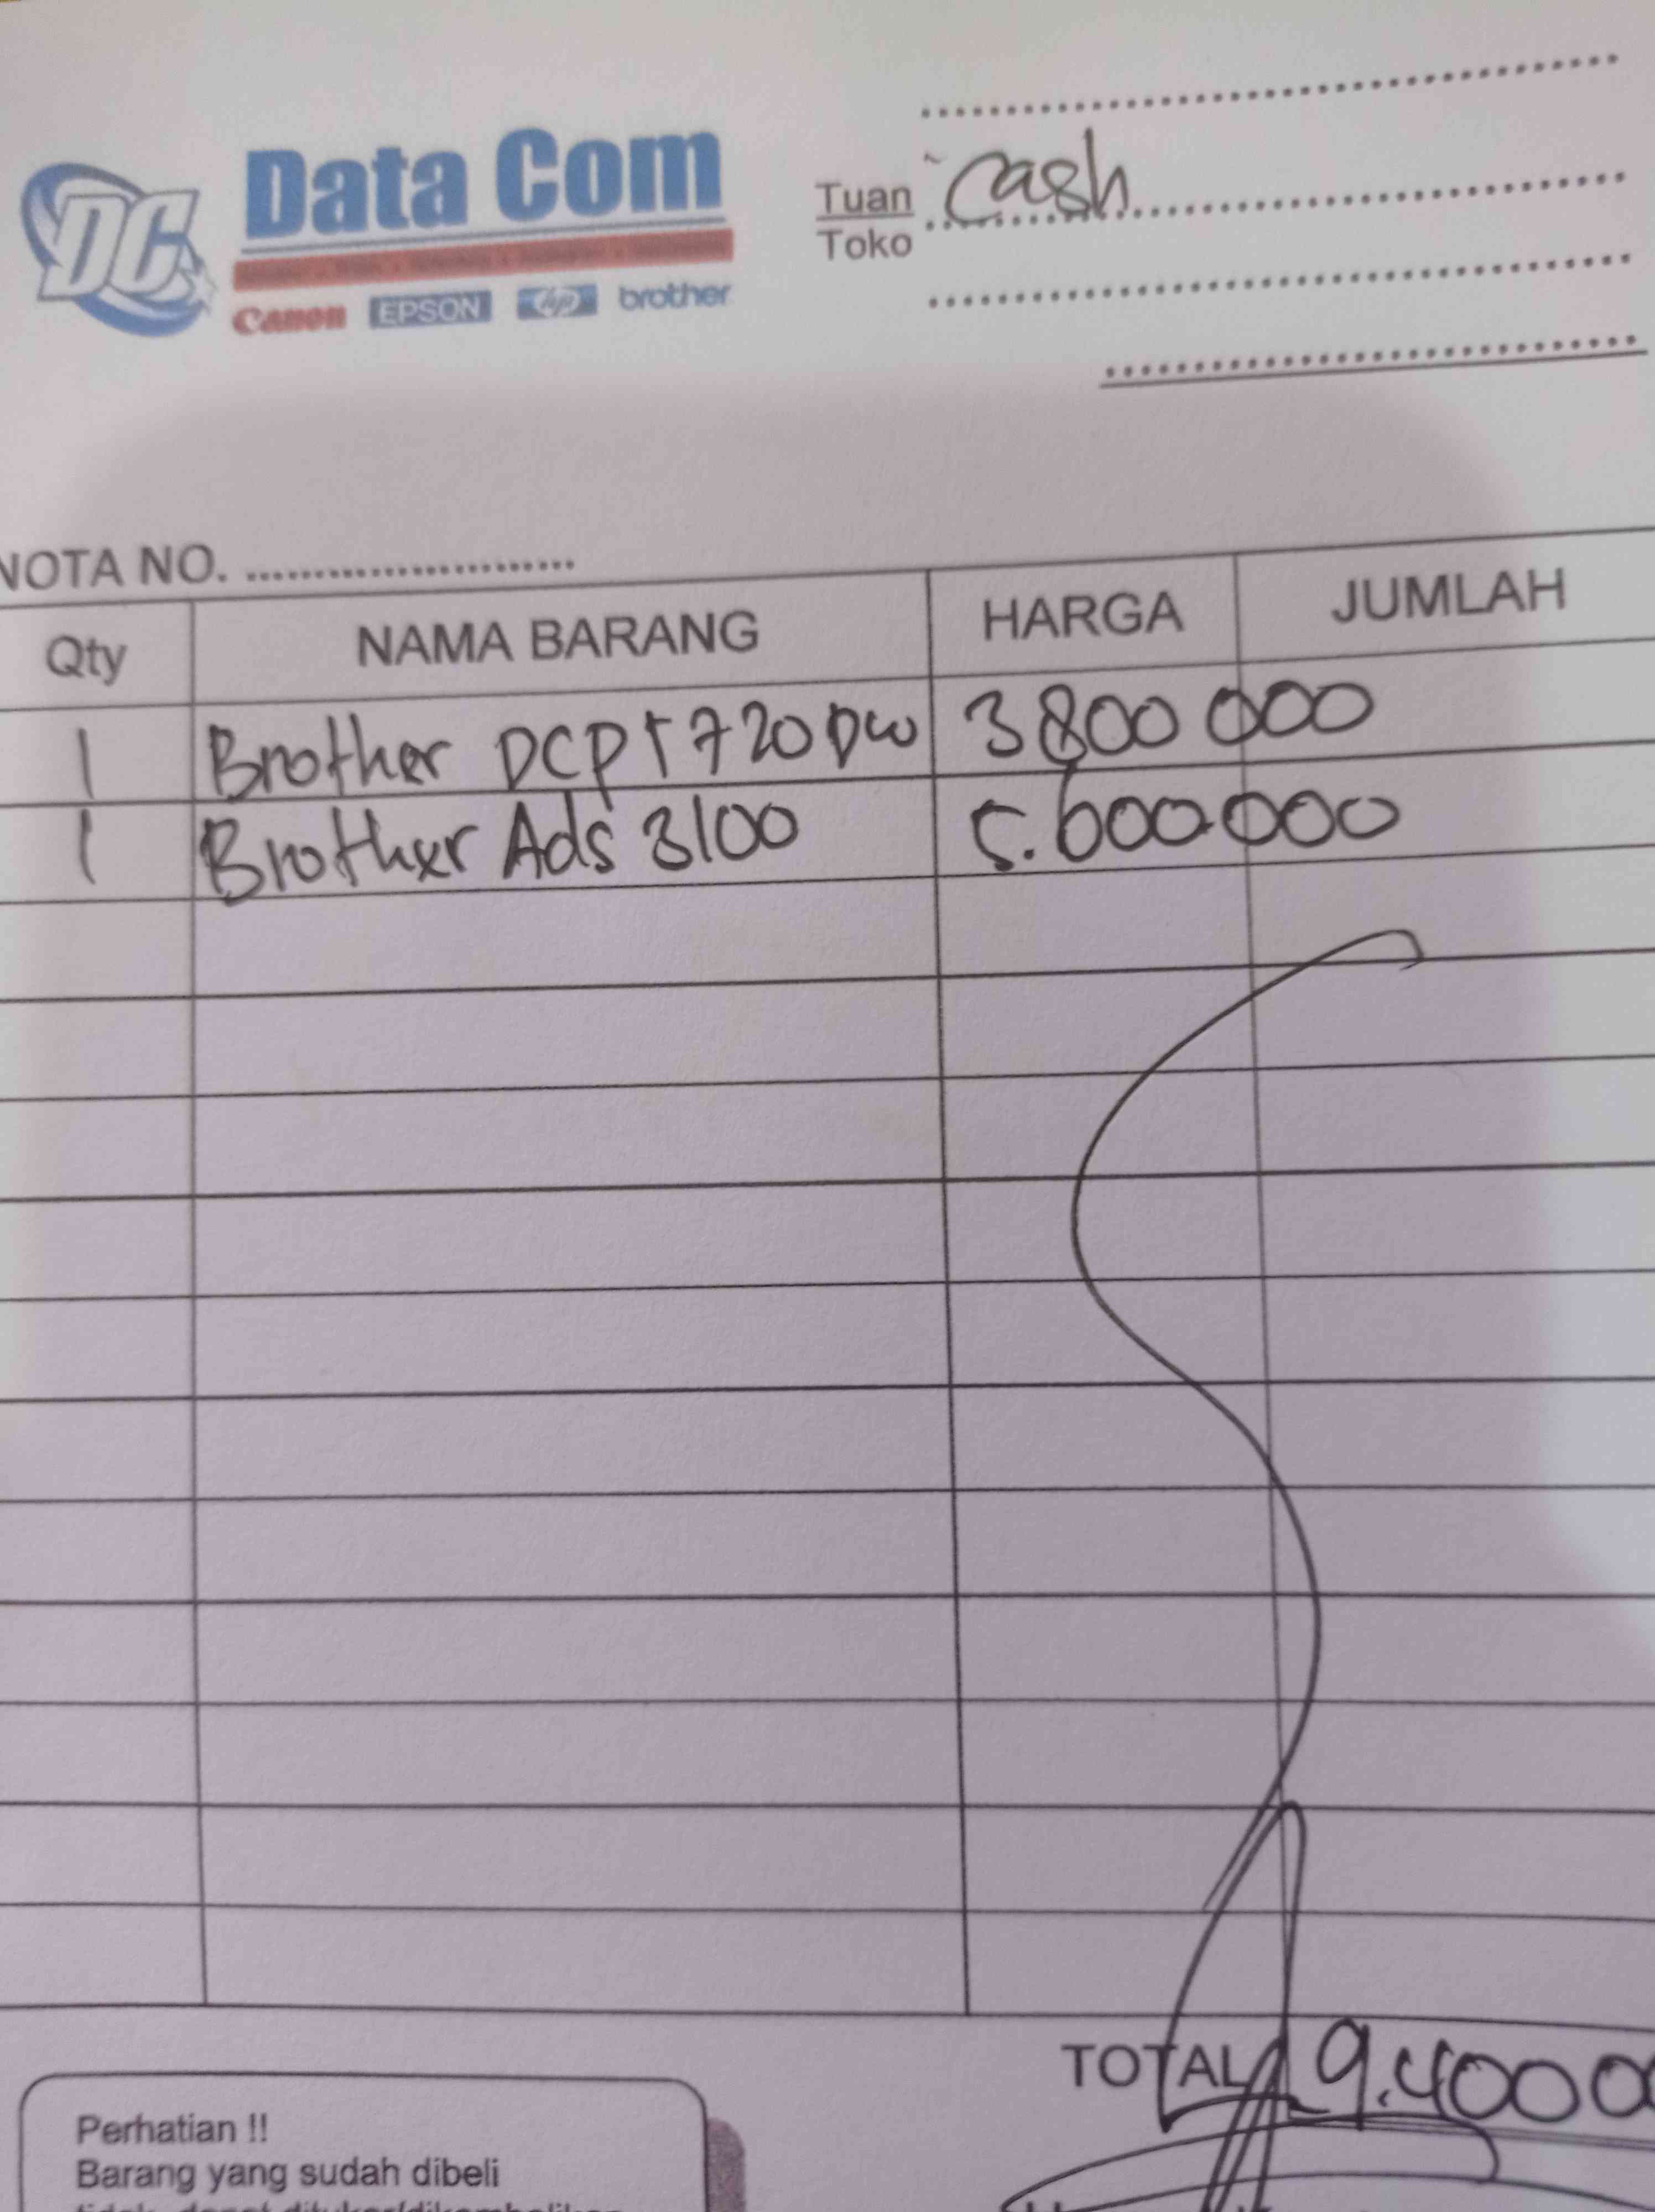 DC
Data Com
Canon EPSON hp brother
Tuan Cash
Toko
NOTA NO. ........................
Qty NAMA BARANG HARGA JUMLAH
1 Brother DCP T720DW 3800 000
1 Brother Ads 3100 5.600.000
TOTAL 9.40000
Perhatian !!
Barang yang sudah dibeli